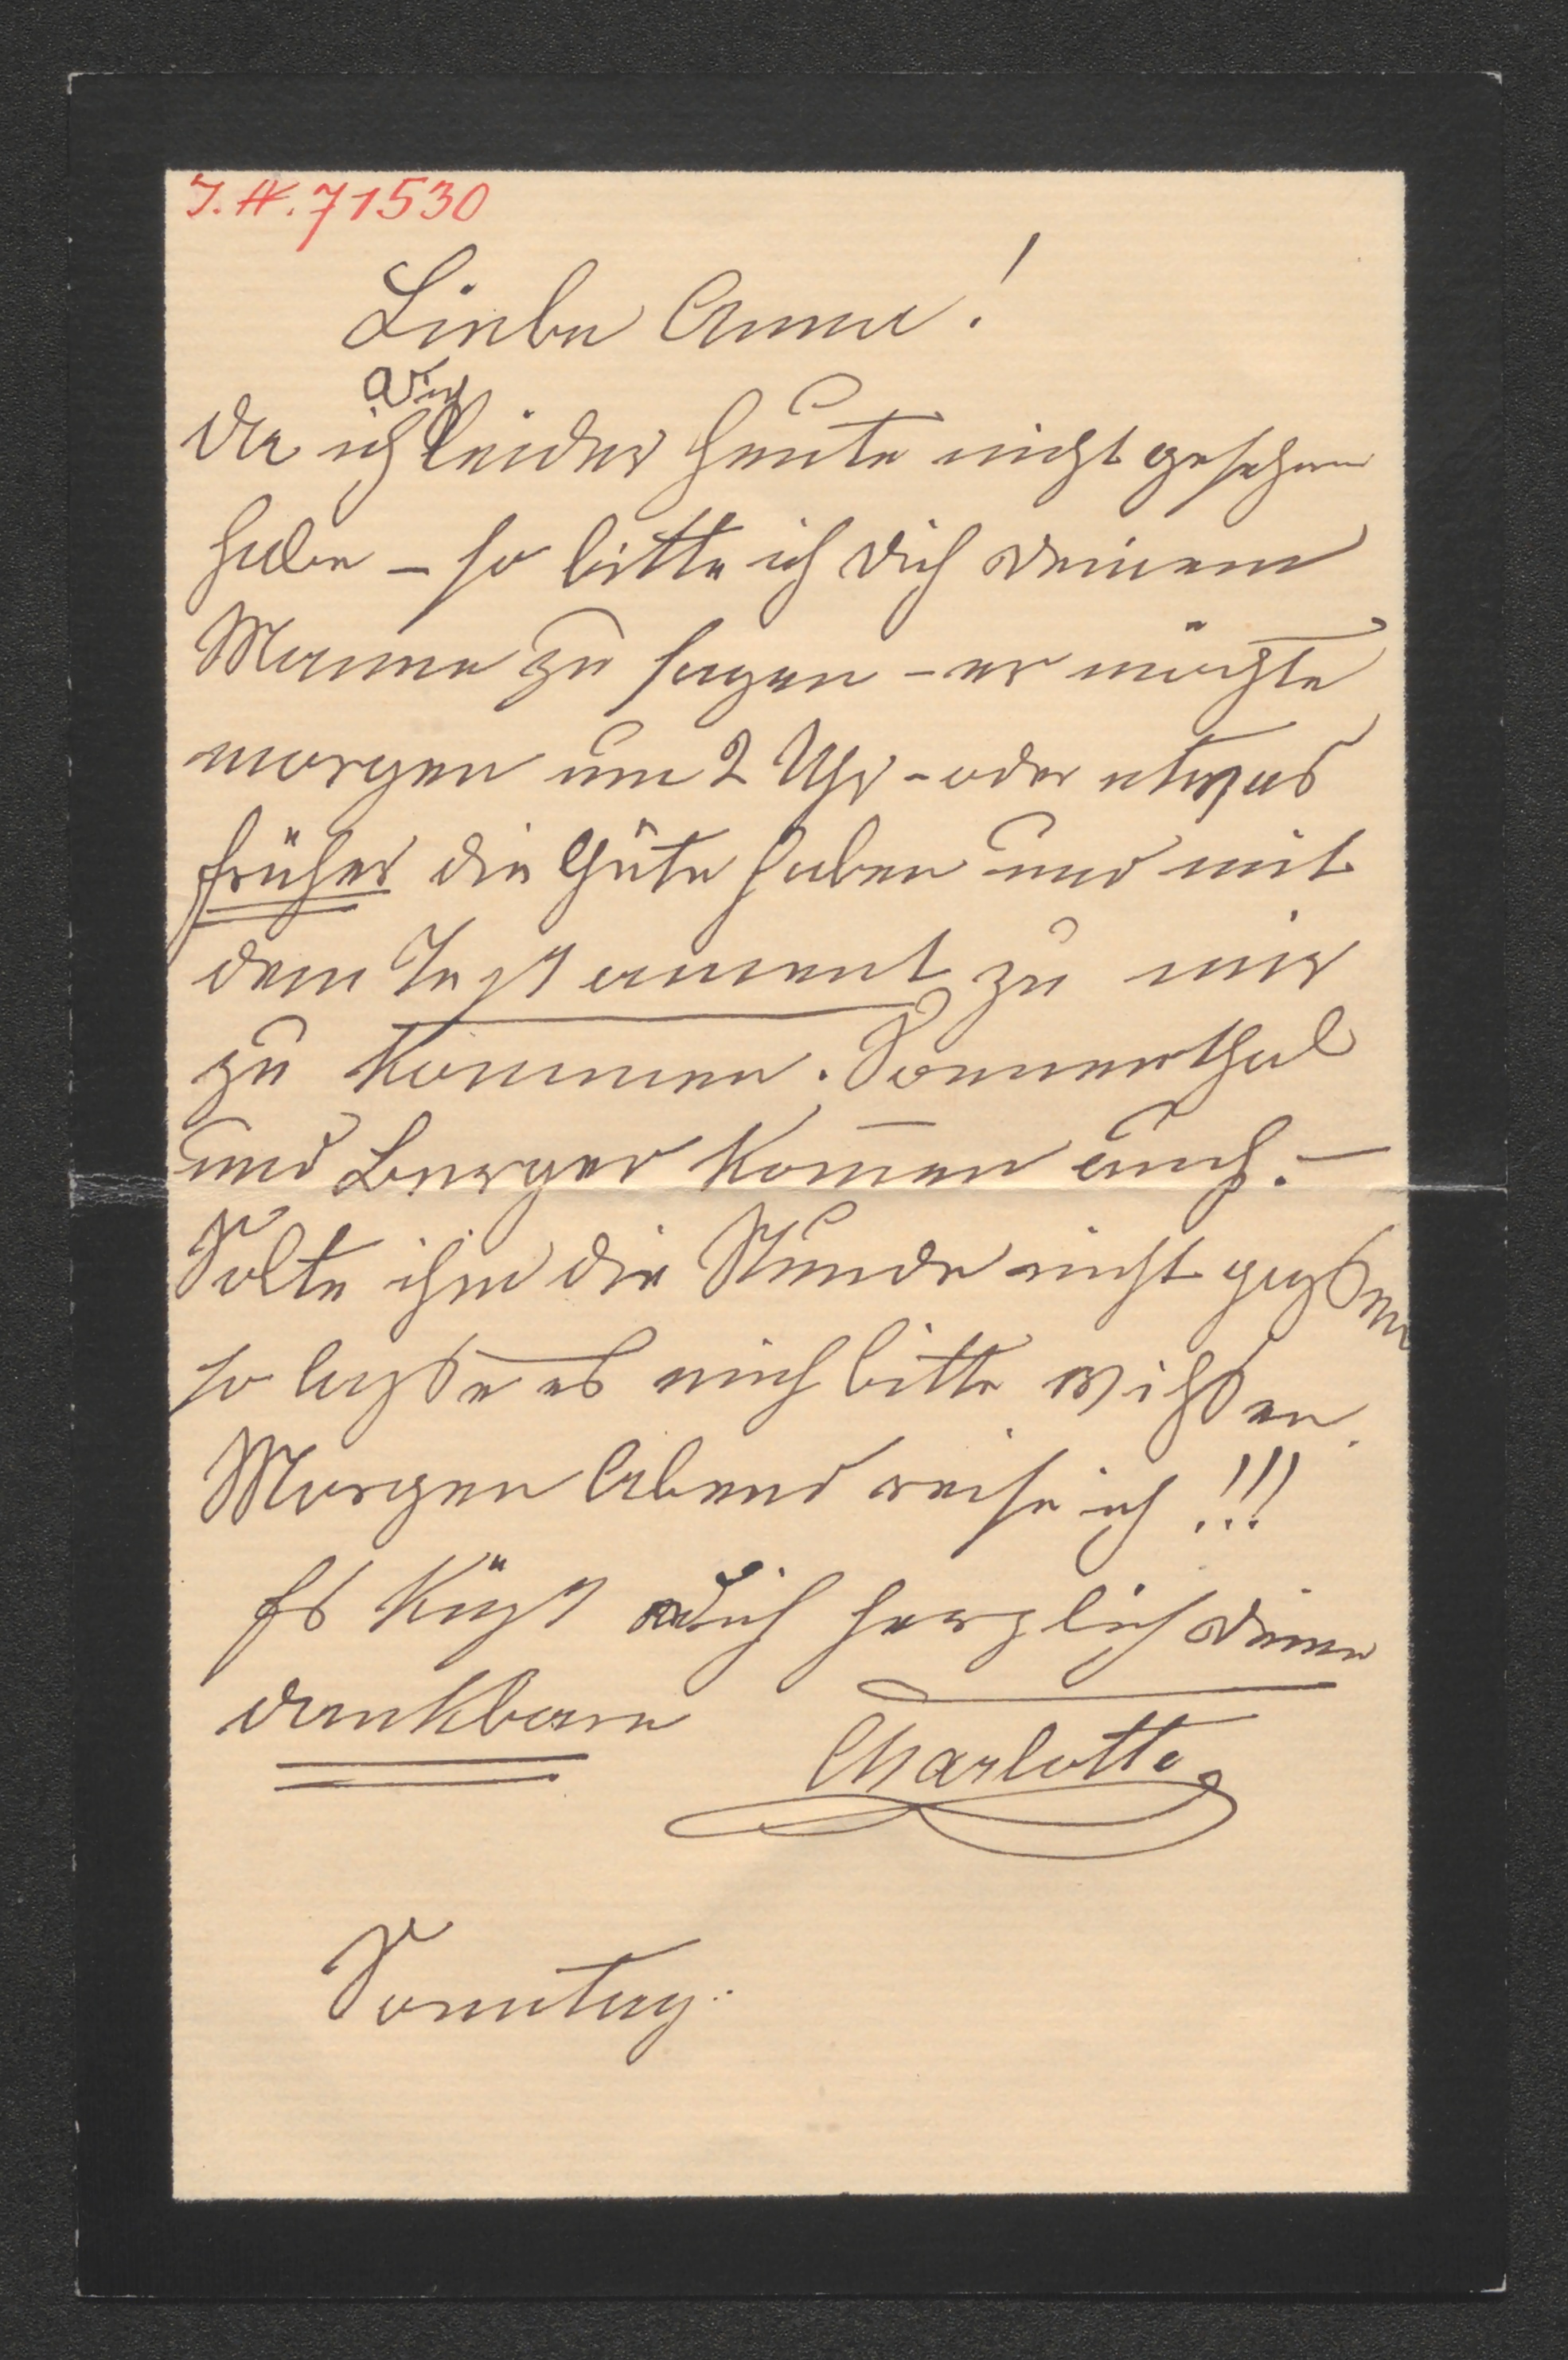 I.N. 71530
Liebe Anna!
Dich
da ich leider heute nicht gesehen
habe – so bitte ich dich deinem
Manne zu sagen – er möchte
morgen um 2 Uhr – oder etwas
früher die Güte haben und mit
dem Testament zu mir
zu kommen. Sonnenthal
und Berger kom̄en auch. –
Solte ihm die Stunde nicht paßen
so laße es mich bitte wißen.
Morgen Abend reise ich!!!
Es küßt dich herzlich deine
dankbare
Charlotte
Sonntag.